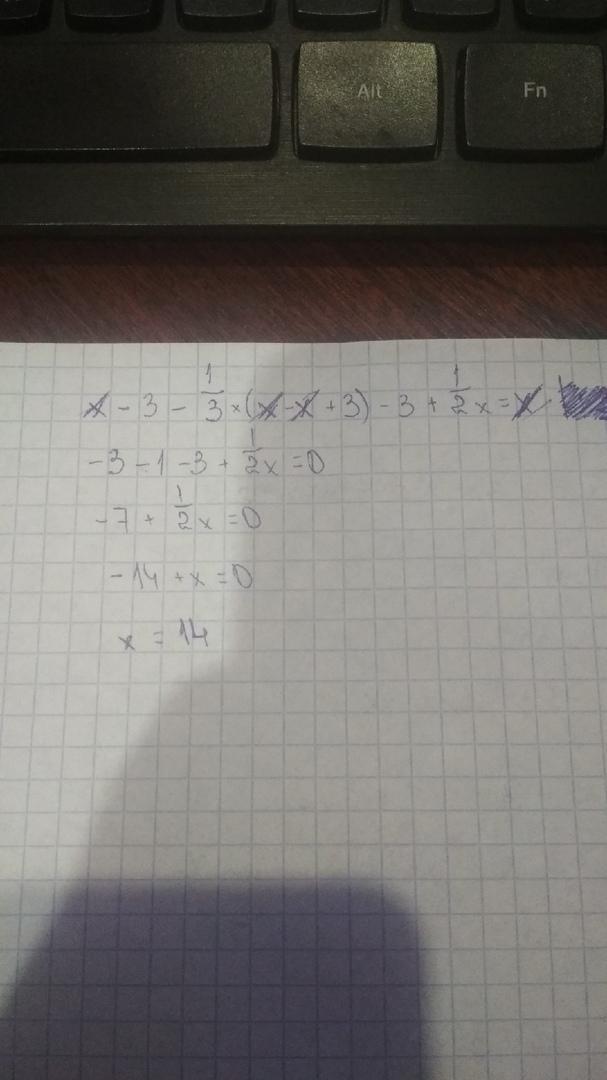 Alt Fn
x - 3 - 1/3 × (x - x + 3) - 3 + 1/2 x = x
-3 - 1 - 3 + 1/2 x = 0
-7 + 1/2 x = 0
-14 + x = 0
x = 14